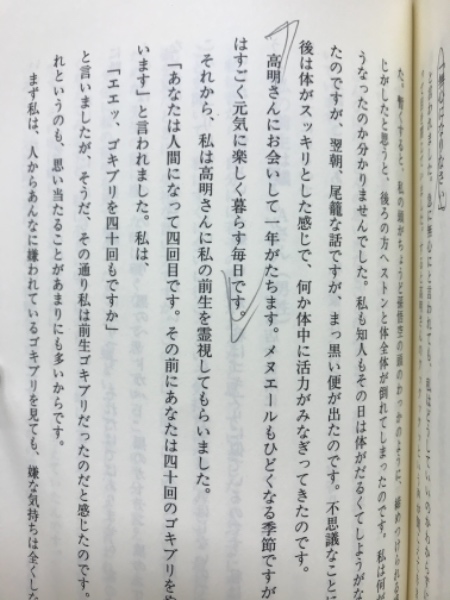 無心になりなさい」
と言われました。急に無心にと言われても、私はどうしていいのか
た。暫くすると、私の頭がちょうど孫悟空の頭のわっかのように、締めつけられる
じがしたと思うと、後ろの方へストンと体全体が倒れてしまったのです。私は何が
うなったのか分かりませんでした。私も知人もその日は体がだるくてしょうがな
たのですが、翌朝、尾籠な話ですが、まっ黒い便が出たのです。不思議なことに
後は体がスッキリとした感じで、何か体中に活力がみなぎってきたのです。
高明さんにお会いして一年がたちます。メヌエールもひどくなる季節ですが
はすごく元気に楽しく暮らす毎日です。
それから、私は高明さんに私の前生を霊視してもらいました。
「あなたは人間になって四回目です。その前にあなたは四十回のゴキブリをや
います」と言われました。私は、
「エエッ、ゴキブリを四十回もですか」
と言いましたが、そうだ、その通り私は前生ゴキブリだったのだと感じたのです。
れというのも、思い当たることがあまりにも多いからです。
まず私は、人からあんなに嫌われているゴキブリを見ても、嫌な気持ちは全くしな